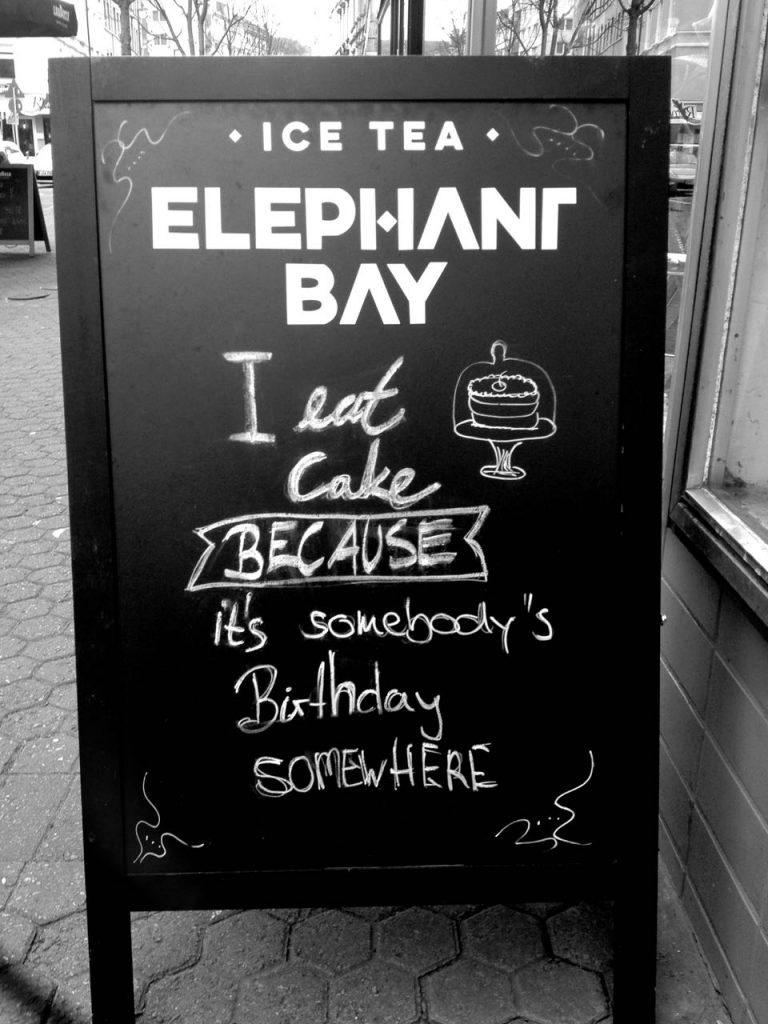 · ICE TEA ·
ELEPHANT
BAY
I eat
Cake
BECAUSE
it's somebody"s
Birthday
SOMEWHERE